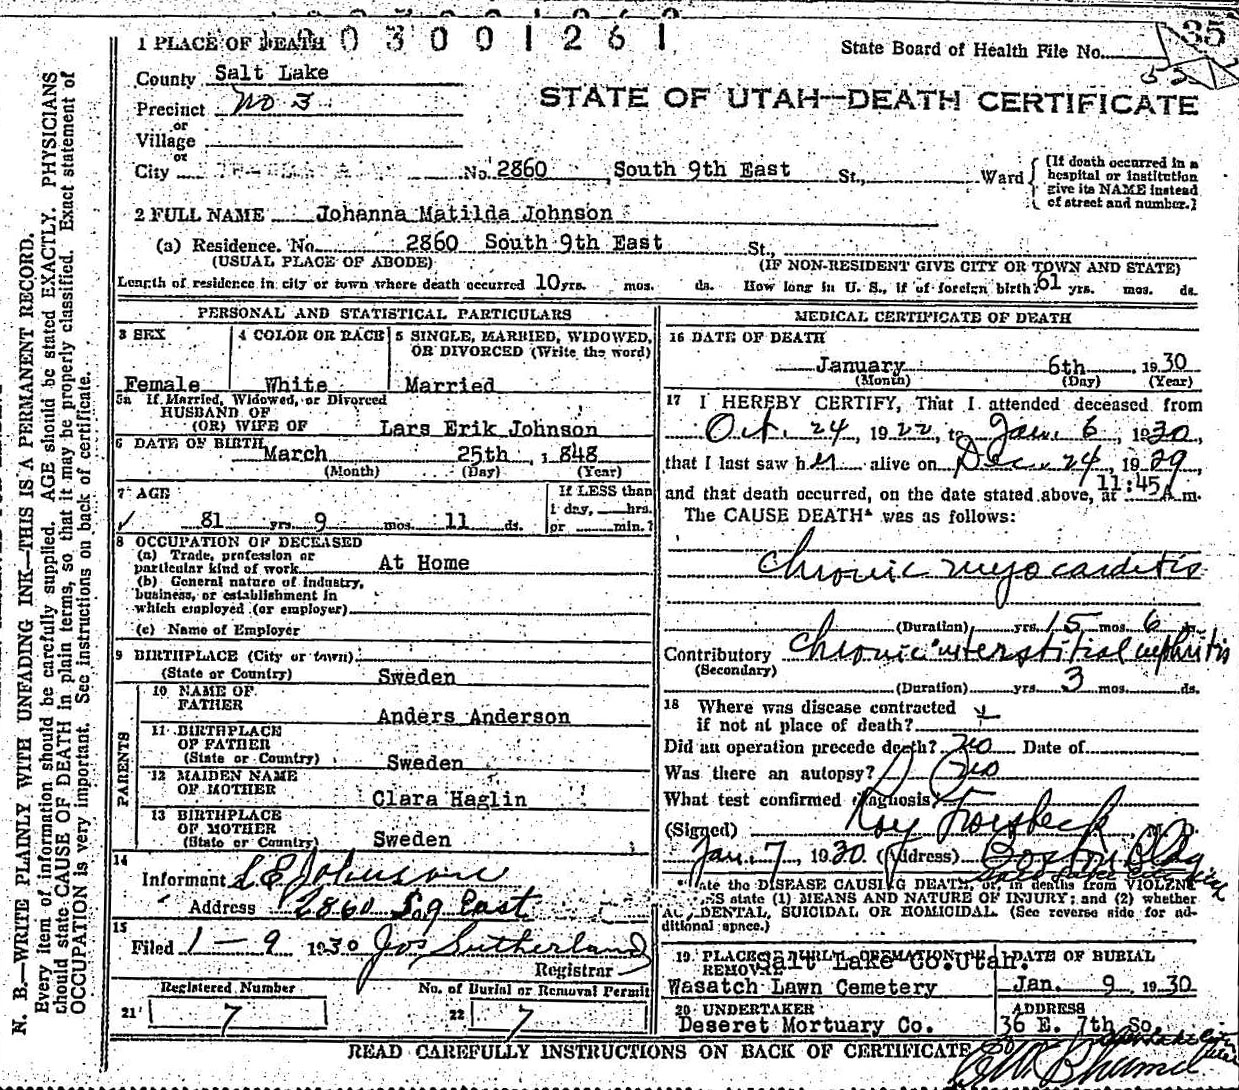 3 0 0 1 2 6 1
35
1 PLACE OF DEATH
State Board of Health File No.
County Salt Lake
Precinct No 3
STATE OF UTAH—DEATH CERTIFICATE
or
Village
or
City No. 2860 South 9th East St., Ward
{If death occurred in a hospital or institution give its NAME instead of street and number.}
2 FULL NAME Johanna Matilda Johnson
(a) Residence. No. 2860 South 9th East St.,
(USUAL PLACE OF ABODE) (IF NON-RESIDENT GIVE CITY OR TOWN AND STATE)
Length of residence in city or town where death occurred 10 yrs. mos. ds. How long in U. S., if of foreign birth? 61 yrs. mos. ds.
PERSONAL AND STATISTICAL PARTICULARS
3 SEX
Female
4 COLOR OR RACE
White
5 SINGLE, MARRIED, WIDOWED,
OR DIVORCED (Write the word)
Married
5a If Married, Widowed, or Divorced
HUSBAND OF
(OR) WIFE OF Lars Erik Johnson
6 DATE OF BIRTH
March 25th, 1848
(Month) (Day) (Year)
7 AGE
81 yrs. 9 mos. 11 ds.
If LESS than
1 day, hrs.
or min.?
8 OCCUPATION OF DECEASED
(a) Trade, profession or
particular kind of work At Home
(b) General nature of industry,
business, or establishment in
which employed (or employer)
(c) Name of Employer
9 BIRTHPLACE (City or town)
(State or Country) Sweden
PARENTS
10 NAME OF
FATHER Anders Anderson
11 BIRTHPLACE
OF FATHER
(State or Country) Sweden
12 MAIDEN NAME
OF MOTHER Clara Haglin
13 BIRTHPLACE
OF MOTHER
(State or Country) Sweden
14
Informant L E Johnson
Address 2860 So 9 East
15
Filed 1-9 1930 Jos Sutherland
Registrar
Registered Number
21 7
No. of Burial or Removal Permit
22 7
MEDICAL CERTIFICATE OF DEATH
16 DATE OF DEATH
January 6th, 1930
(Month) (Day) (Year)
17 I HEREBY CERTIFY, That I attended deceased from
Oct. 24, 1922, to Jan. 6, 1930,
that I last saw her alive on Dec. 24, 1929
and that death occurred, on the date stated above, at 11:45 A m.
The CAUSE DEATH* was as follows:
Chronic myocarditis
(Duration) yrs. 15 mos. 6 ds.
Contributory Chronic interstitial nephritis
(Secondary)
(Duration) yrs. 3 mos. ds.
18 Where was disease contracted
if not at place of death?
Did an operation precede death? no Date of
Was there an autopsy? no
What test confirmed diagnosis?
(Signed) Roy Groesbeck, M. D.
Jan. 7, 1930 (Address) Boston Bldg
Salt Lake City
State the DISEASE CAUSING DEATH, or, in deaths from VIOLENT
state (1) MEANS AND NATURE OF INJURY; and (2) whether
ACCIDENTAL, SUICIDAL OR HOMICIDAL. (See reverse side for additional space.)
19 PLACE OF BURIAL, CREMATION,
REMOVAL Salt Lake Co. Utah.
Wasatch Lawn Cemetery
DATE OF BURIAL
Jan. 9, 1930
20 UNDERTAKER
Deseret Mortuary Co.
ADDRESS
36 E. 7th So.
READ CAREFULLY INSTRUCTIONS ON BACK OF CERTIFICATE
N. B.—WRITE PLAINLY WITH UNFADING INK—THIS IS A PERMANENT RECORD.
Every item of information should be carefully supplied. AGE should be stated EXACTLY. PHYSICIANS
should state CAUSE OF DEATH in plain terms, so that it may be properly classified. Exact statement of
OCCUPATION is very important. See instructions on back of certificate.